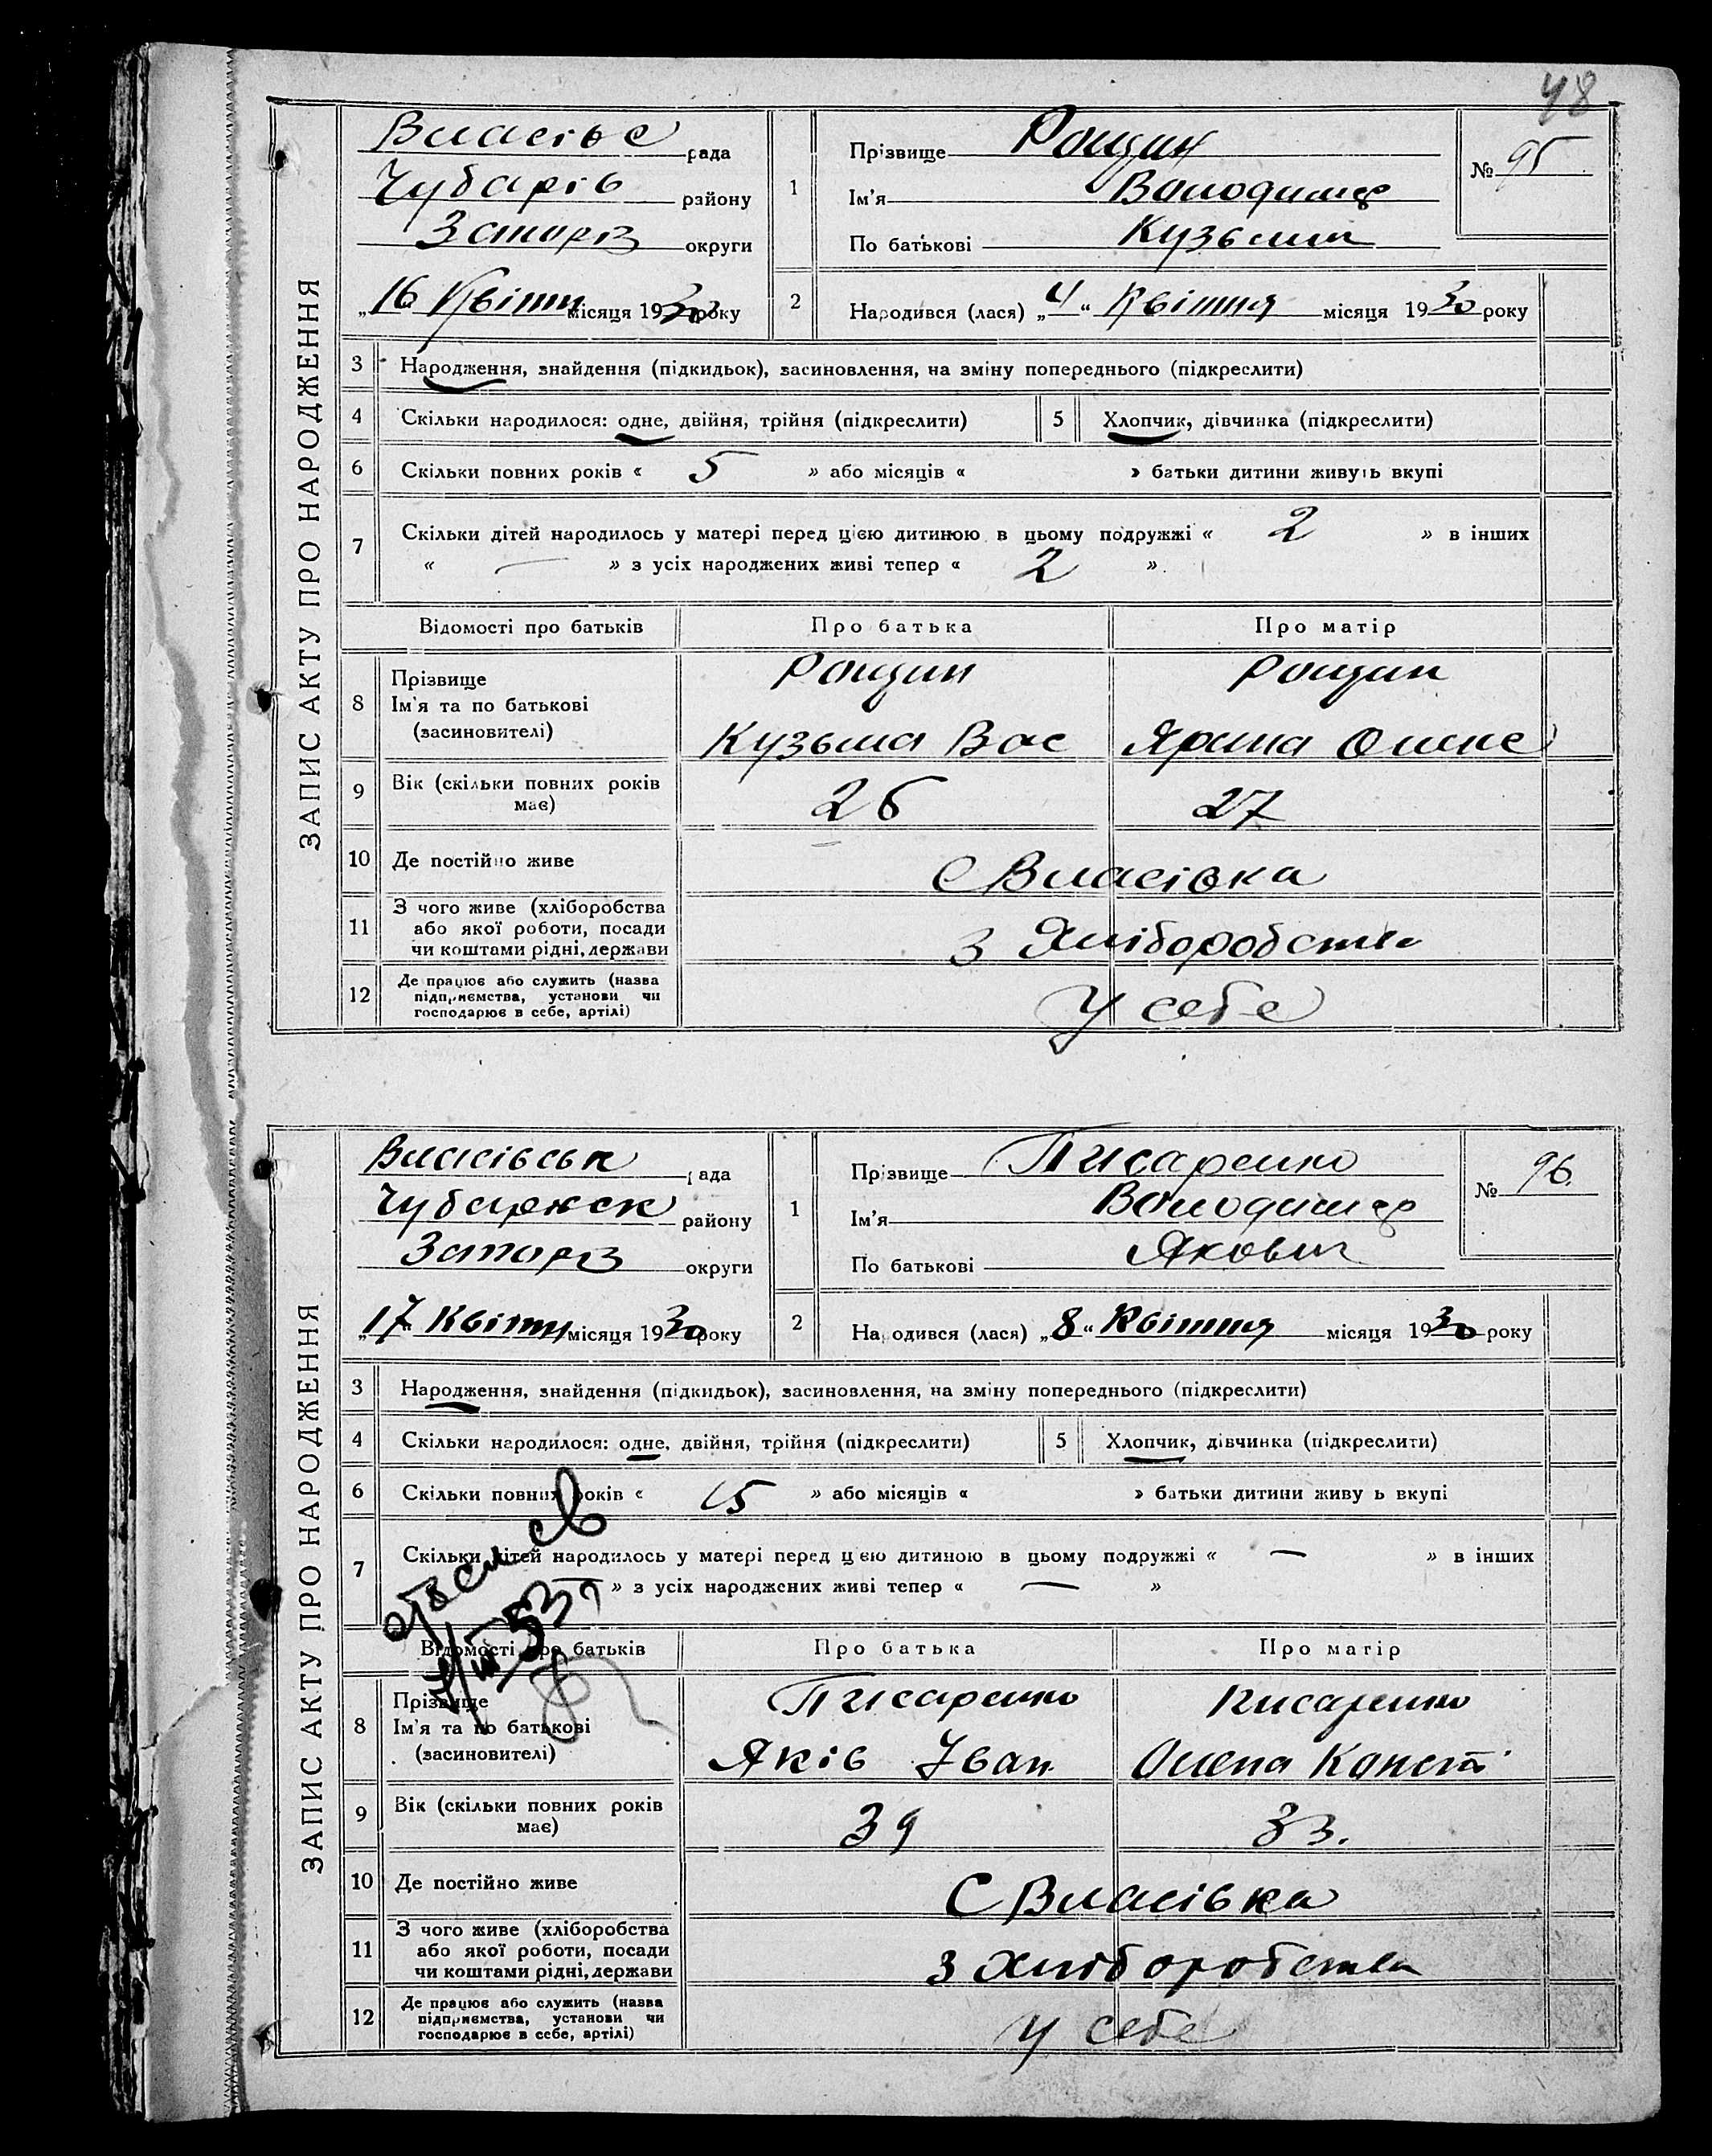 48
ЗАПИС АКТУ ПРО НАРОДЖЕННЯ
Власівс рада
Чубарів району
Запоріз округи
„16 Квітня місяця 1930 року
1 Прізвище Рощин
Ім'я Володимир
По батькові Кузьмич
№ 95
2 Народився (лася) „4“ Квітня місяця 1930 року
3 Народження, знайдення (підкидьок), засиновлення, на зміну попереднього (підкреслити)
4 Скільки народилося: одне, двійня, трійня (підкреслити) 5 Хлопчик, дівчинка (підкреслити)
6 Скільки повних років « 5 » або місяців « » батьки дитини живуть вкупі
7 Скільки дітей народилось у матері перед цією дитиною в цьому подружжі « 2 » в інших
« — » з усіх народжених живі тепер « 2 »
Відомості про батьків Про батька Про матір
8 Прізвище Рощин Рощин
Ім'я та по батькові
(засиновителі) Кузьма Вас Ярина Олекс
9 Вік (скільки повних років має) 26 27
10 Де постійно живе С Власівка
11 З чого живе (хліборобства
або якої роботи, посади
чи коштами рідні, держави З Хліборобства
12 Де працює або служить (назва
підприємства, установи чи
господарює в себе, артілі) У себе
ЗАПИС АКТУ ПРО НАРОДЖЕННЯ
Власівськ рада
району
Запоріз округи
„17 Квітня місяця 1930 року
1 Прізвище Писаренко
Ім'я Володимир
По батькові Якович
№ 96.
2 Народився (лася) „8“ Квітня місяця 1930 року
3 Народження, знайдення (підкидьок), засиновлення, на зміну попереднього (підкреслити)
4 Скільки народилося: одне, двійня, трійня (підкреслити) 5 Хлопчик, дівчинка (підкреслити)
6 Скільки повних років « » або місяців « » батьки дитини живуть вкупі
7 Скільки дітей народилось у матері перед цією дитиною в цьому подружжі « — » в інших
» з усіх народжених живі тепер « — »
Відомості про батьків Про батька Про матір
8 Прізвище Писаренко Писаренко
Ім'я та по батькові
(засиновителі) Яків Іван Олена Конст
9 Вік (скільки повних років має) 39 33.
10 Де постійно живе С Власівка
11 З чого живе (хліборобства
або якої роботи, посади
чи коштами рідні, держави З Хліборобства
12 Де працює або служить (назва
підприємства, установи чи
господарює в себе, артілі) У себе